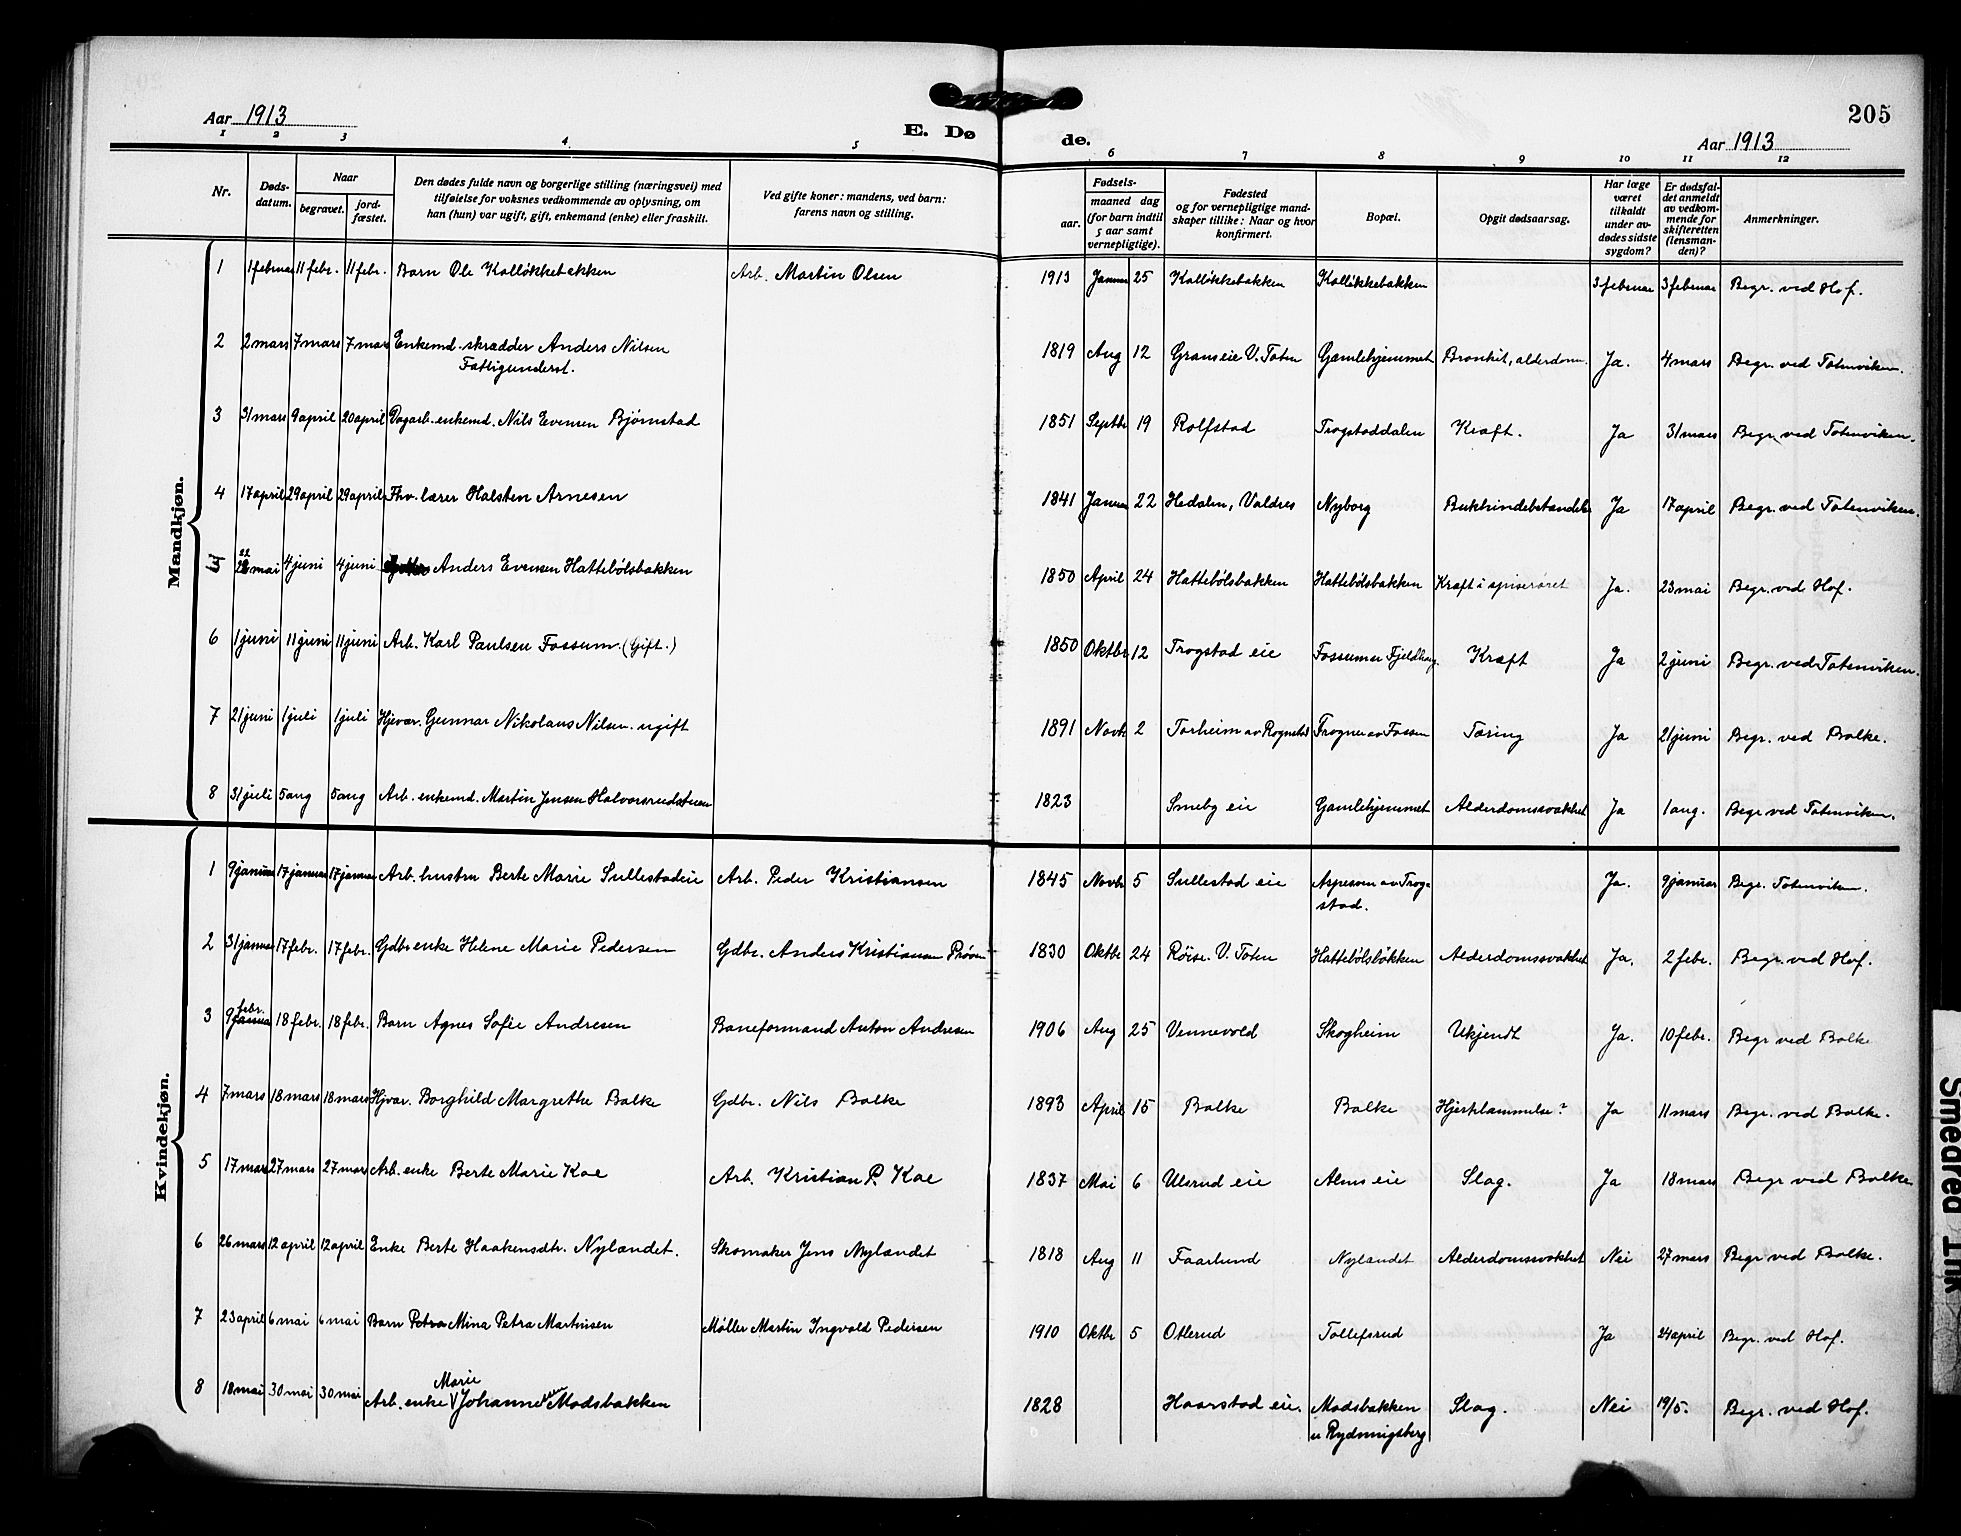 205
Aar 1913
E. Dø de.
Aar 1913
1 2 3 4 5 6 7 8 9 10 11 12
Nr.
Døds-
datum.
Naar
begravet.
jord-
fæstet.
Den dødes fulde navn og borgerlige stilling (næringsvei) med
tilføielse for voksnes vedkommende av oplysning, om
han (hun) var ugift, gift, enkemand (enke) eller fraskilt.
Ved gifte koner: mandens, ved barn:
farens navn og stilling.
Fødsels-
aar.
maaned dag
(for barn indtil
5 aar samt
vernepligtige).
Fødested
og for vernepligtige mand-
skaper tillike: Naar og hvor
konfirmert.
Bopæl.
Opgit dødsaarsag.
Har læge
været
tilkaldt
under av-
dødes sidste
sygdom?
Er dødsfal-
det anmeldt
av vedkom-
mende for
skifteretten
(lensman-
den)?
Anmerkninger.
Mandkjøn.
1 1 februar 11 febr. 11 febr. Barn Ole Kalløkkebakken Arb. Martin Olsen 1913 Januar 25 Kalløkkebakken Kalløkkebakken 3 februar 3 februar Begr. ved Hof.
2 2 mars 7 mars 7 mars Enkemd. skrædder Anders Nilsen 1819 Aug 12 Grans eie V. Toten Gamlehjemmet Bronkit, alderdom. Ja. 4 mars Begr. ved Totenviken.
Fattigunderst.
3 31 mars 9 april 20 april Dagarb. enkemd. Nils Evensen Bjørnstad 1851 Septbr 19 Rolfstad Trogstaddalen Kræft. Ja 31 mars Begr. ved Totenviken.
4 17 april 29 april 29 april Fhv. lærer Halsten Arnesen 1841 Januar 22 Hedalen, Valdres Nyborg Bukhindebetændelse Ja 17 april Begr. ved Totenviken.
5 22 mai 4 juni 4 juni Anders Evensen Hattebølsbakken 1850 April 24 Hattebølsbakken Hattebølsbakken Kræft i spiserøret Ja. 23 mai Begr. ved Hof.
6 1 juni 11 juni 11 juni Arb. Karl Paulsen Fossum. (Gift.) 1850 Oktbr 12 Trogstad eie Fossum Fjeldhaug Kræft Ja 2 juni Begr. ved Totenviken.
7 21 juni 1 juli 1 juli Hjevar. Gunnar Nikolaus Nilsen. ugift 1891 Novbr 2 Torheim av Rognstad Trogner av Fossen Tæring Ja 21 juni Begr. ved Balke.
8 31 juli 5 aug 5 aug Arb. enkemd. Martin Jensen Halvorsrudstuen 1823 Smeby eie Gamlehjemmet Alderdomssvakhet Ja 1 aug. Begr ved Totenviken.
Kvindekjøn.
1 9 januar 17 januar 17 januar Arb. hustru Berte Marie Sullestadeie Arb. Peder Kristiansen 1845 Novbr 5 Sullestad eie Aspesom av Trog- Ja. 9 januar Begr. Totenviken.
stad.
2 31 januar 17 febr. 17 febr. Gdbr enke Helene Marie Pedersen Gdbr. Anders Kristiansen Prøven 1830 Oktbr 24 Røise. V. Toten Hattebølsløkken Alderdomssvakhet Ja. 2 febr. Begr. ved Hof.
febr.
3 9 januar 18 febr. 18 febr. Barn Agnes Sofie Andresen Baneformand Anton Andresen 1906 Aug 25 Vennevold Skogheim Ukjendt Ja. 10 febr. Begr ved Balke
4 7 mars 18 mars 18 mars Hjvar. Borghild Margrethe Balke Gdbr. Nils Balke 1893 April 15 Balke Balke Hjerteklammelse? Ja 11 mars Begr. ved Balke.
5 17 mars 27 mars 27 mars Arb. enke Berte Marie Kae Arb. Kristian P. Kae 1837 Mai 6 Ulsrud eie Alms eie Slag. Ja 18 mars Begr ved Balke
6 26 mars 12 april 12 april Enke Berte Haakensdtr. Nylandet. Skomaker Jens Nylandet 1818 Aug 11 Faarlund Nylandet Alderdomssvakhet Nei 27 mars Begr ved Balke.
7 23 april 6 mai 6 mai Barn Petra Mina Petra Martinsen Møller Martin Ingvald Pedersen 1910 Oktbr 5 Otlerud Tollefsrud Ja 24 april Begr. ved Hof.
Marie
8 18 mai 30 mai 30 mai Arb. enke Johanne Madsbakken 1828 Haarstad eie. Madsbakken Slag. Nei 19/5. Begr. ved Hof.
u Rydningsberg
Smeared Ink